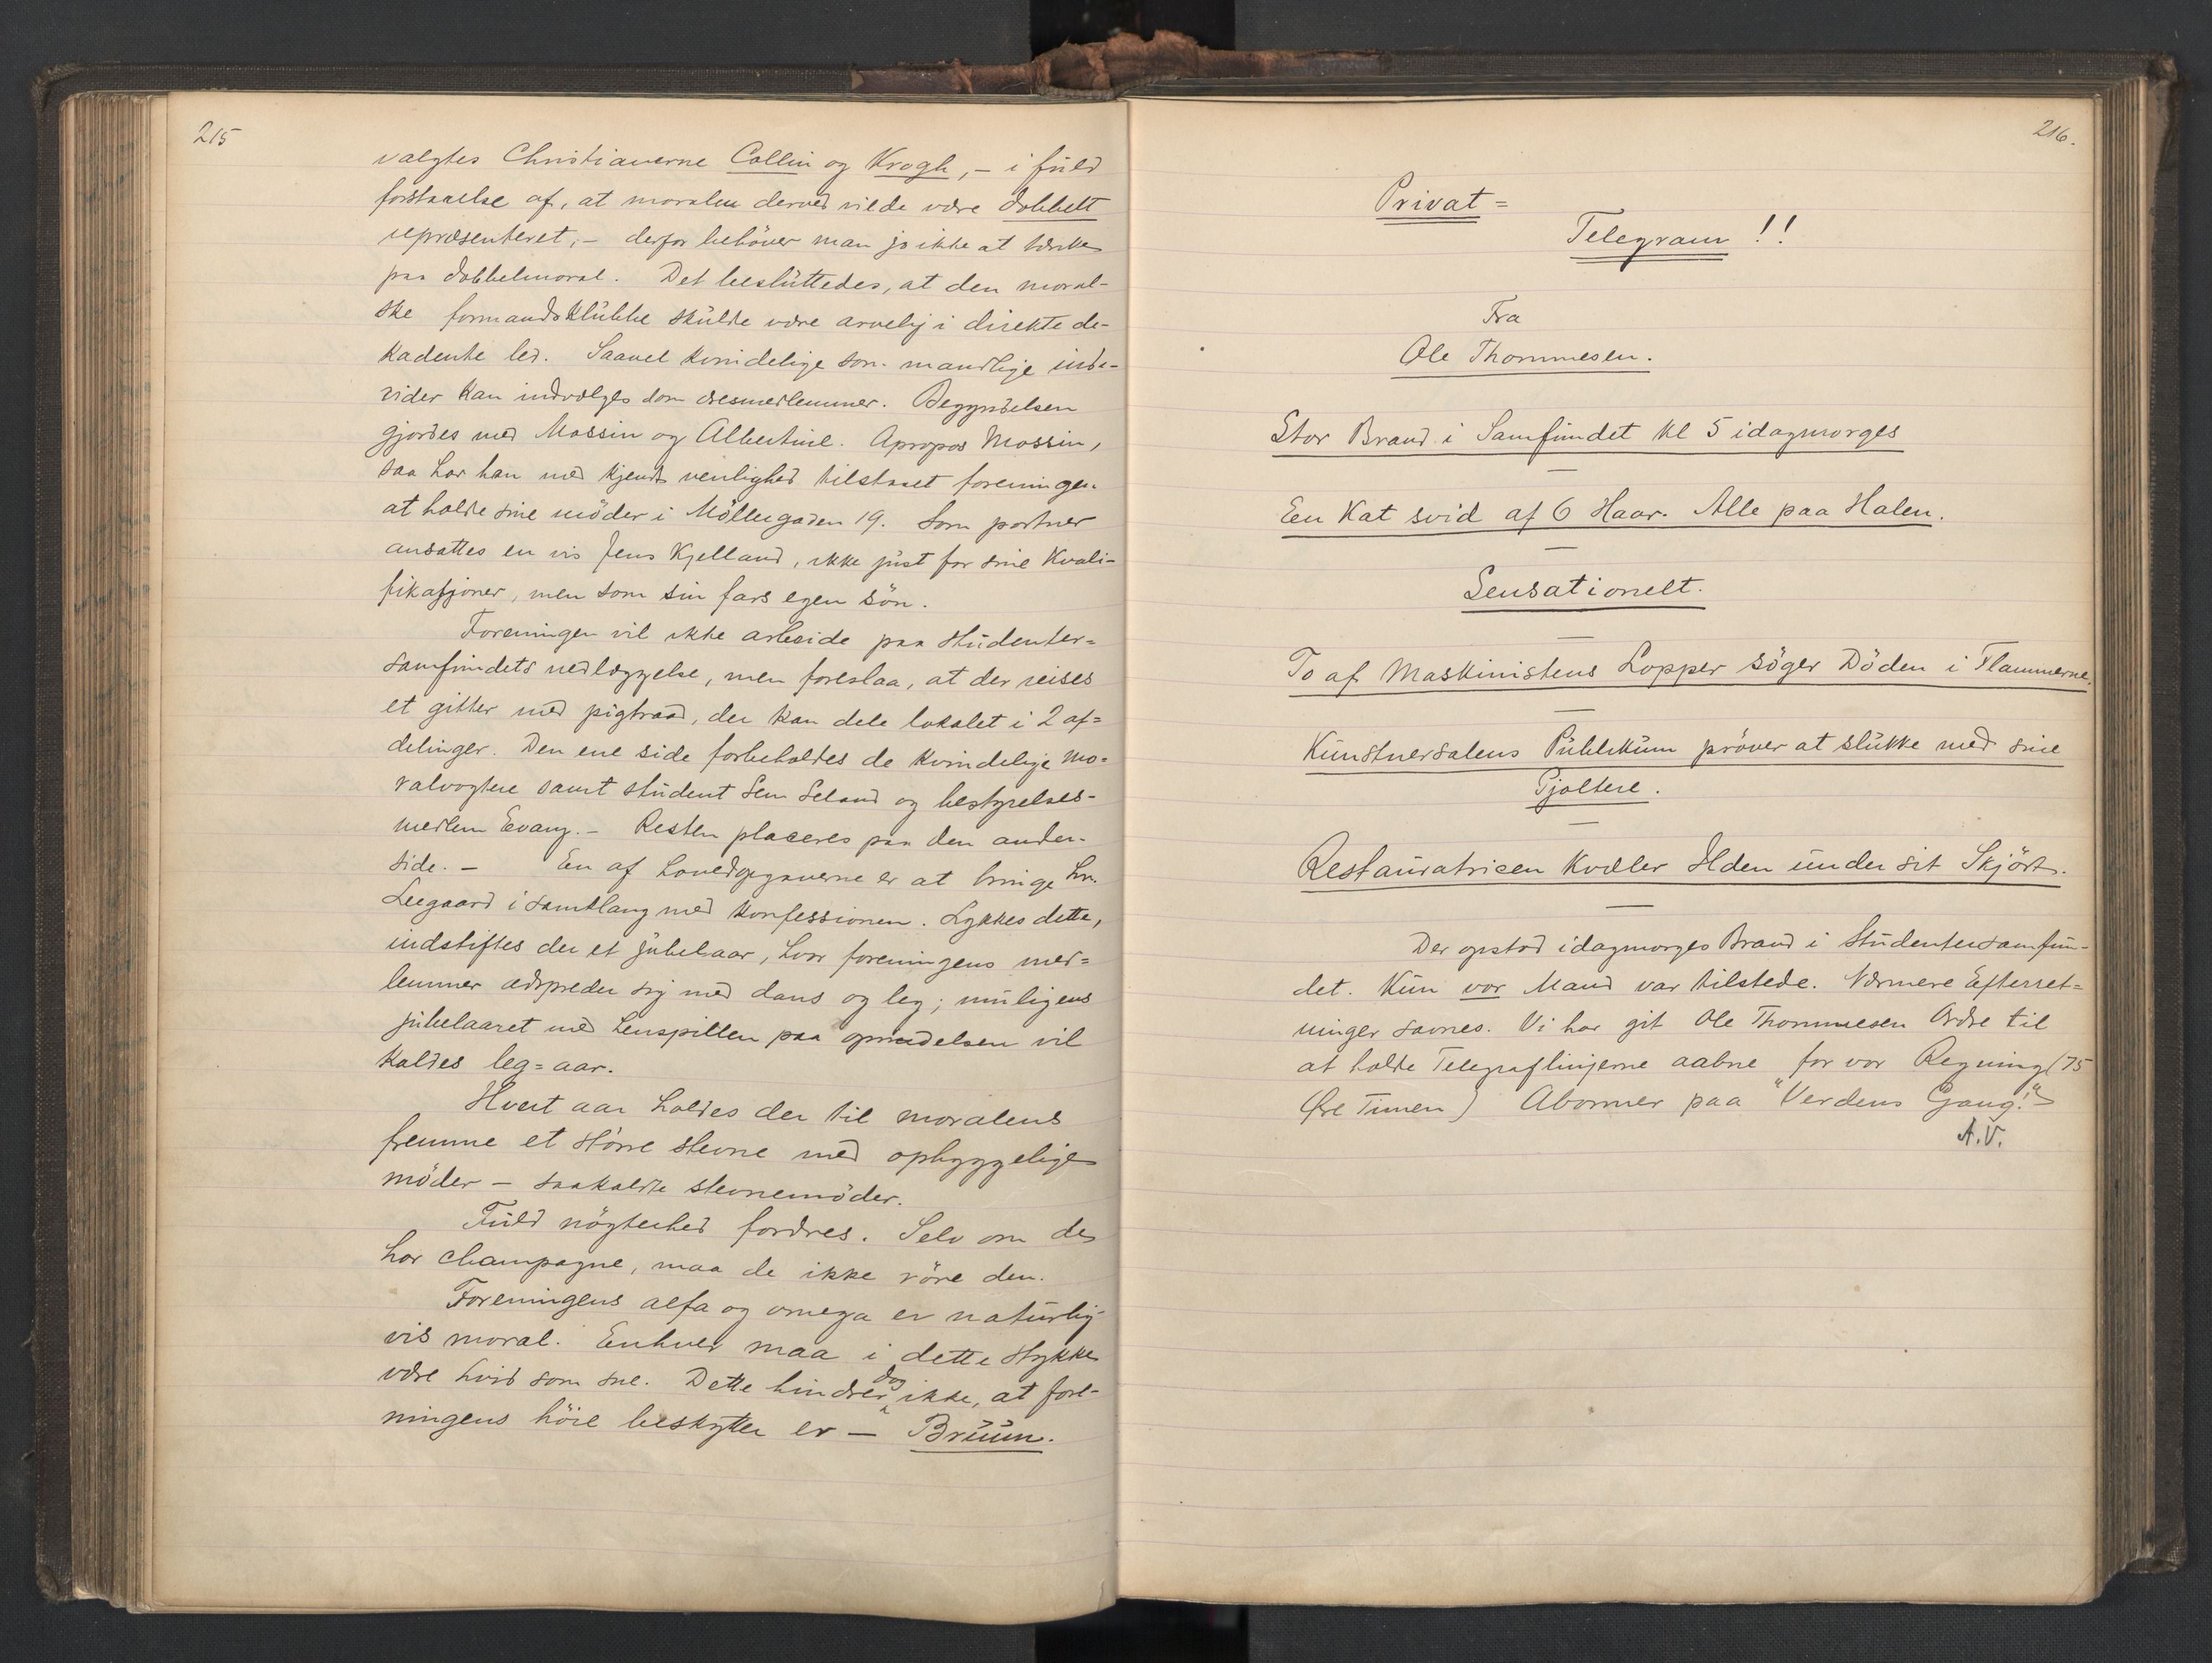 215
valgtes Christianerne Collin og Krogh, – i fuld
forstaaelse af, at moralen derved vilde være dobbelt
repræsenteret, – derfor behöver man jo ikke at tænke
paa dobbelmoral. Det besluttedes, at den moral-
ske formandsklubbe skulde være arvelig i direkte de-
kadente led. Saavel kvindelige som mandlige indi-
vider kan indvælges som æresmedlemmer. Begyndelsen
gjordes med Mossin og Albertine. Apropos Mossin,
saa har han med kjendt venlighed tilstaaet foreningen
at holde sine möder i Möllergaden 19. Som portner
ansattes en vis Jens Kjelland, ikke just for sine kvali-
fikasjoner, men som sin fars egen sön.
Foreningen vil ikke arbeide paa studenter=
samfundets nedlæggelse, men foreslaa, at der reises
et gitter med pigtraad, der kan dele lokalet i 2 af=
delinger. Den ene side forbeholdes de kvindelige mo=
ralvogtere samt student Sem Seland og bestyrelses-
medlem Evang. – Resten placeres paa den anden
side. – En af hovedopgaverne er at bringe hr.
Leegaard i samklang med konfessionen. Lykkes dette,
indstiftes der et jubelaar, hvor foreningens med=
lemmer adspreder sig med dans og leg; muligens
jubelaaret med henspillen paa oprindelsen vil
kaldes leg=aar.
Hvert aar holdes der til moralens
fremme et större stevne med opbyggelige
möder – saakaldte stevnemöder.
Fuld nögterhed fordres. Selv om de
har champagne, maa de ikke röre den.
Foreningens alfa og omega er naturlig-
vis moral. Enhver maa i dette stykke
være hvid som sne. Dette hindrer dog ikke, at fore-
ningens höie beskytter er – Bruun.
216.
Privat=
Telegram!!
Fra
Ole Thommesen.
Stor Brand i Samfundet kl 5 idagmorges
—
Een Kat svid af 6 Haar. Alle paa Halen.
—
Sensationelt.
—
To af Maskinistens Lopper söger Döden i Flammerne.
—
Kunstnersalens Publikum pröver at slukke med sine
Pjoltere.
—
Restauratricen kvæler Ilden under sit Skjört.
—
Der opstod idagmorges Brand i Studentersamfun-
det. Kun vor Mand var tilstede. Nærmere Efterret=
ninger savnes. Vi har git Ole Thommesen Ordre til
at holde Telegraflinjerne aabne for vor Regning (75
Øre Timen) Abonner paa "Verdens Gang!"
A.V.